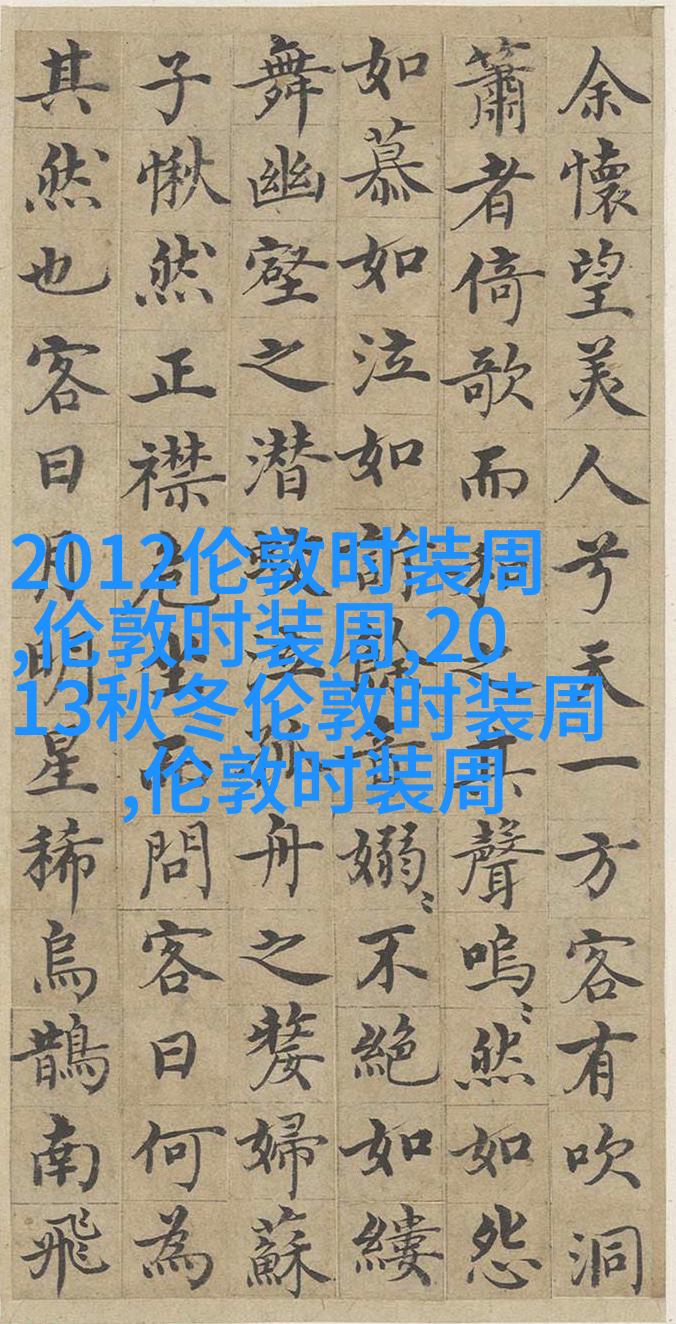 余懷望美人兮天一方客有吹洞
簫者倚歌而和之其聲嗚〻然如怨
如慕如泣如訴餘音嫋〻不絕如縷
舞幽壑之潛蛟泣孤舟之嫠婦蘇
子愀然正襟危坐而問客曰何為
其然也客曰月明星稀烏鵲南飛
2012伦敦时装周
,伦敦时装周,20
13秋冬伦敦时装周
,伦敦时装周